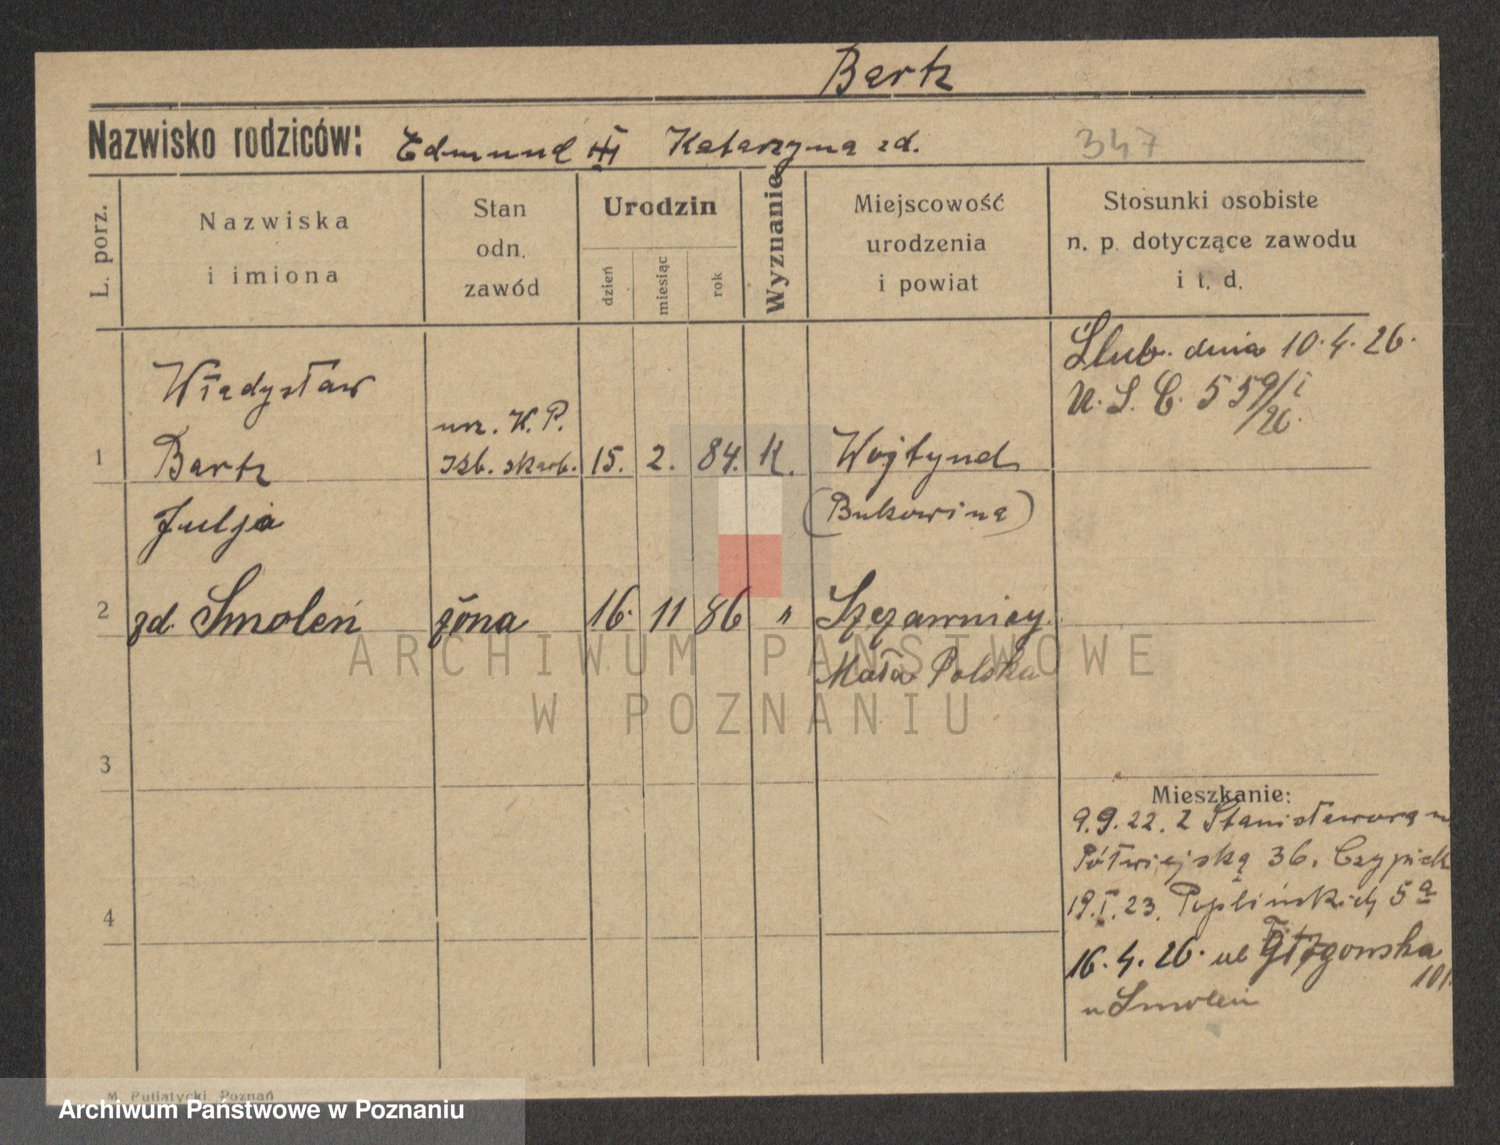 Bartz
Nazwisko rodziców: Edmund Katarzyna zd.
347
L. porz.
Nazwiska
i imiona
Stan
odn.
zawód
Urodzin
dzień
miesiąc
rok
Wyznanie
Miejscowość
urodzenia
i powiat
Stosunki osobiste
n. p. dotyczące zawodu
i t. d.
Ślub. dnia 10.4.26.
U. S. C. 559/I
/26.
Władysław
urz. K. P.
1 Bartz Izb. skarb. 15. 2. 84. K. Wojtynel
Julja (Bukowina)
2 zd. Smoleń żona 16. 11 86 " Szczawnicy
Mała Polska
3
Mieszkanie:
9.9.22. z Stanisławowa
Półwiejska 36.
4 19.I.23. Poplińskich 5a
16.4.26. ul Głogowska
101
u Smoleń
M. Putiatycki, Poznań
ARCHIWUM PAŃSTWOWE
W POZNANIU
Archiwum Państwowe w Poznaniu